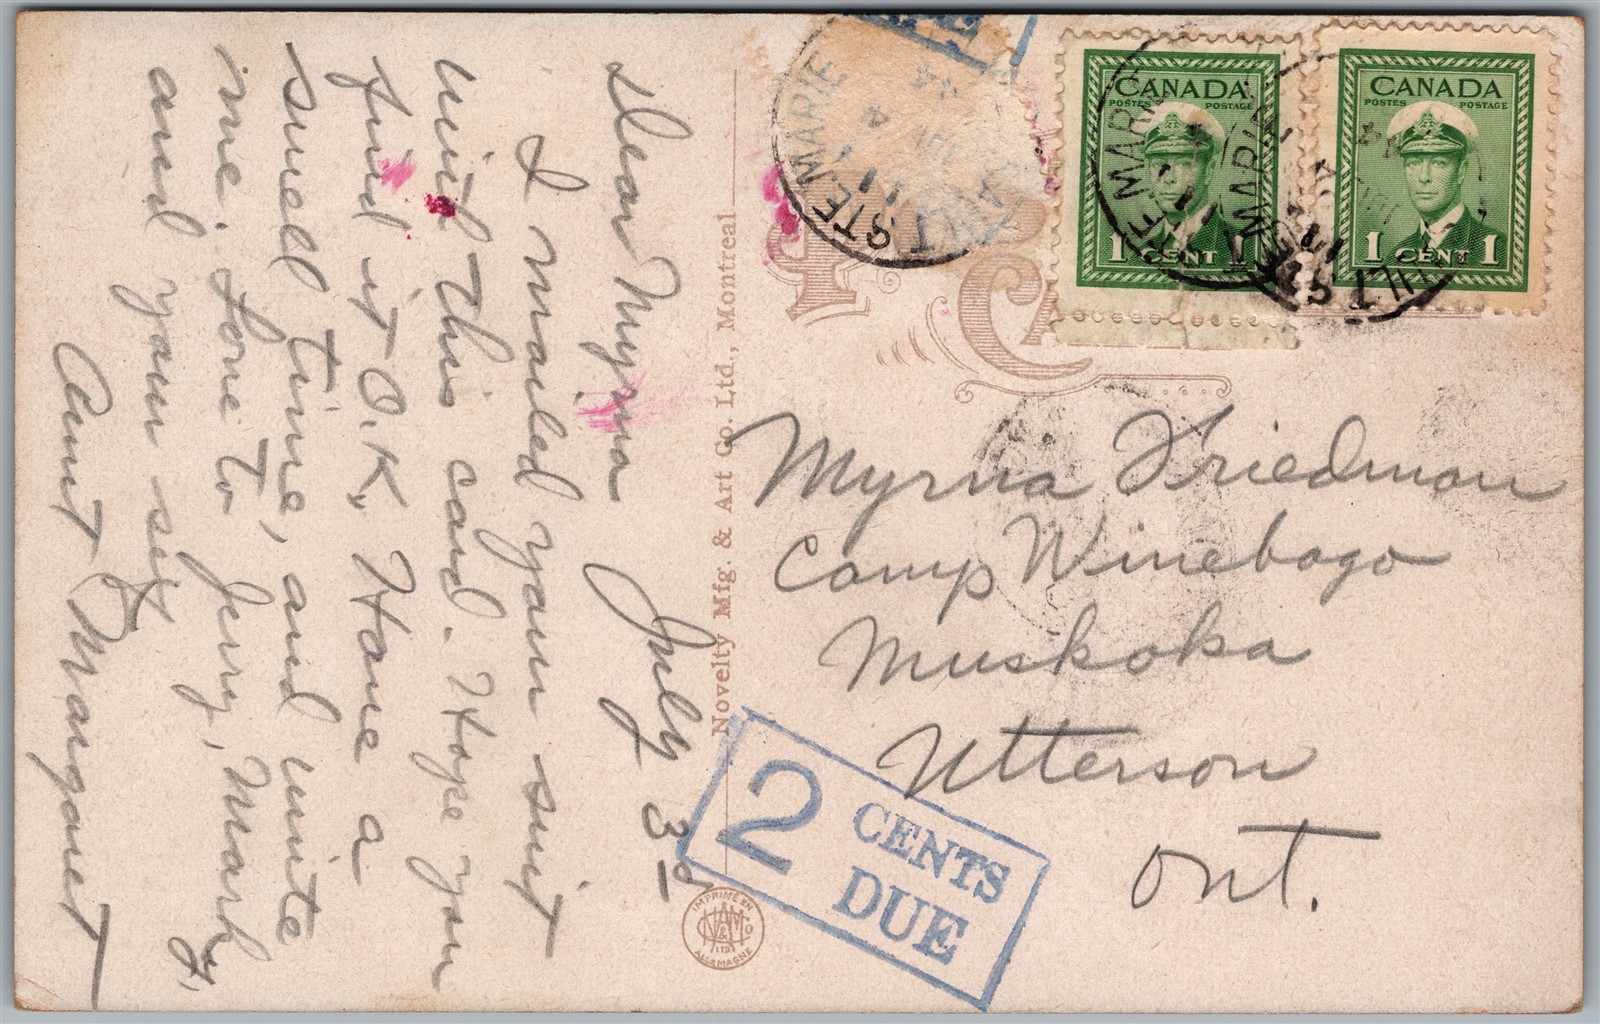 Dear Myrna July 3rd
I mailed your suit
with this card. Hope you
find it O.K. Have a
swell time, and write
me. Love to Jerry, Marky,
and your self
Aunt Margaret
Novelty Mfg. & Art Co. Ltd., Montreal
STE MARIE
JUL 4
11
CANADA
POSTES POSTAGE
1 CENT 1
CANADA
POSTES POSTAGE
1 CENT 1
Myrna Friedman
Camp Winebago
Muskoka
Utterson
Ont.
2 CENTS
DUE
IMPRIMÉ EN
ALLEMAGNE